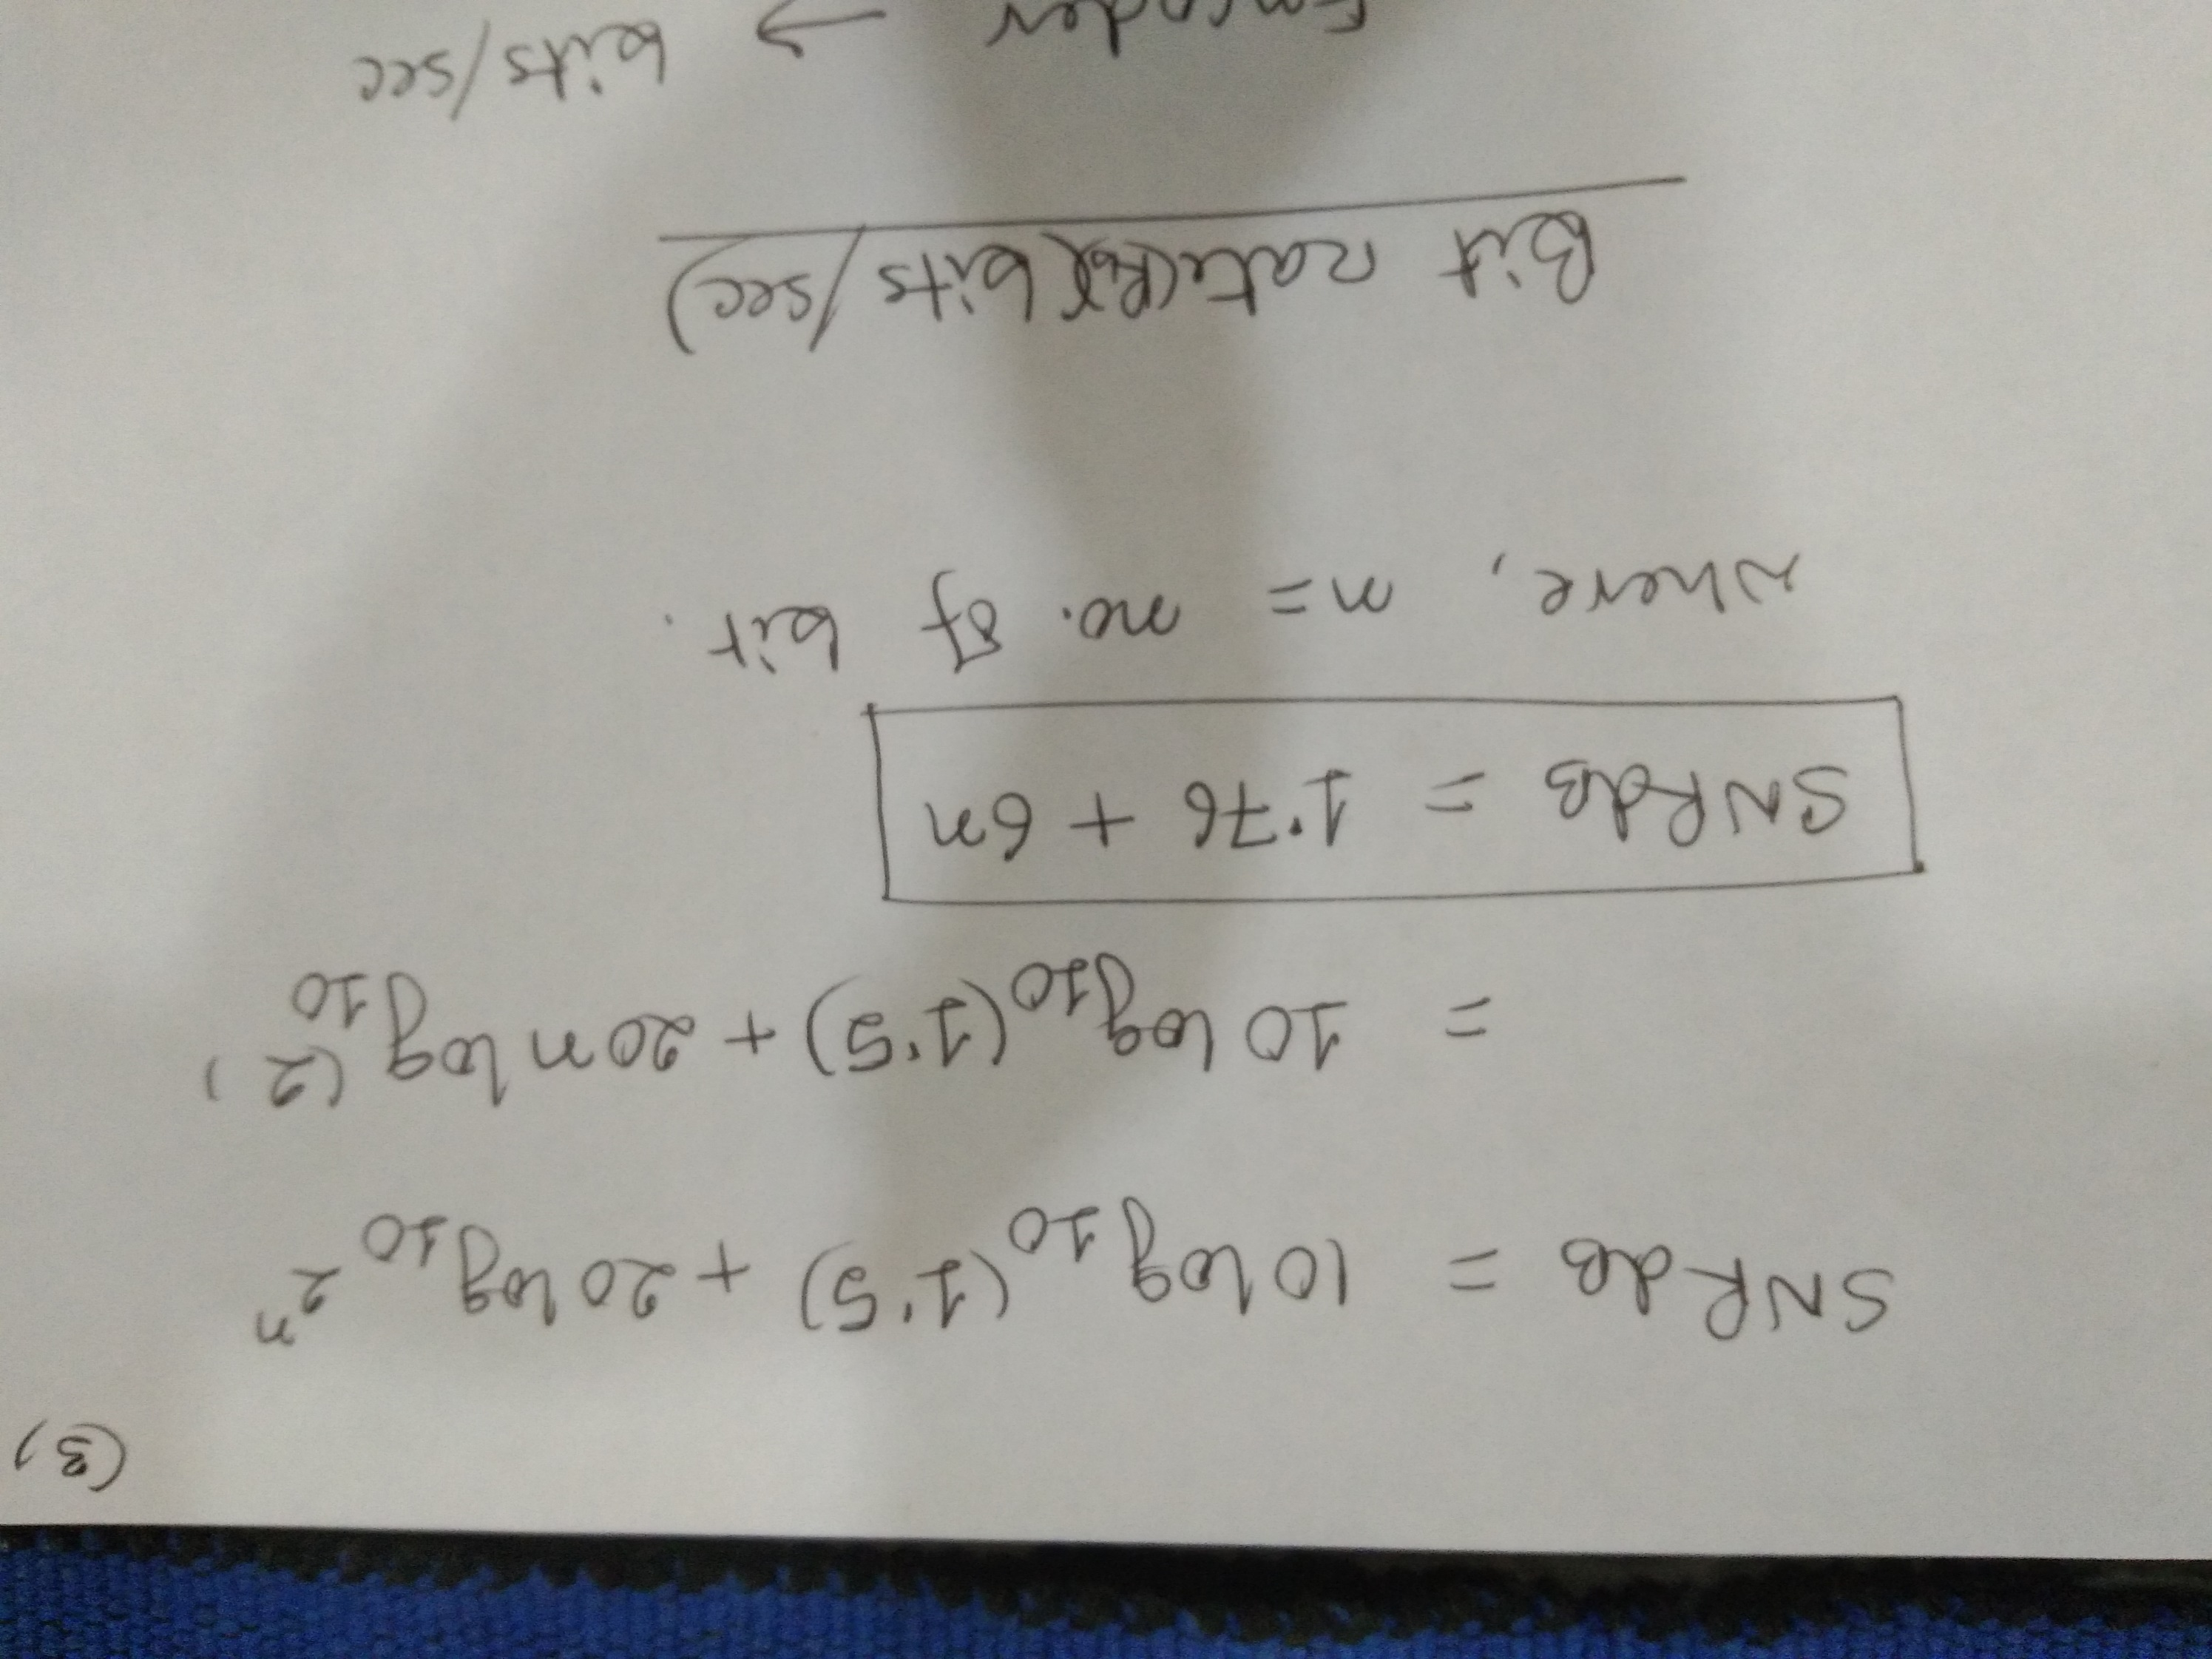 (3)
SNRdB = 10 log10 (1.5) + 20 log10 2^n
= 10 log10 (1.5) + 20 n log10 (2)
SNRdB = 1.76 + 6n
where, n = no. of bit.
Bit rate (Rb) (bits/sec)
Encoder → bits/sec